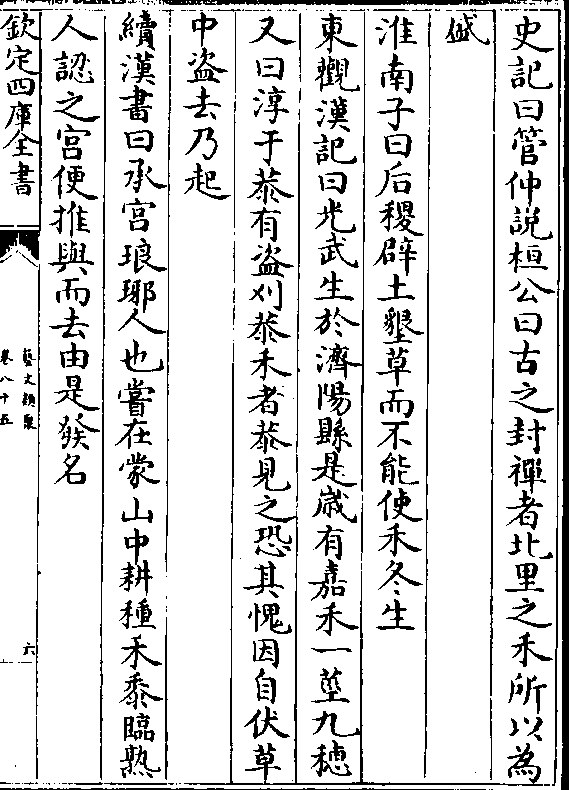 史記曰管仲説桓公曰古之封禪者北里之禾所以為
盛
淮南子曰后稷辟土墾草而不能使禾冬生
東觀漢記曰光武生於濟陽縣是歲有嘉禾一莖九穂
又曰淳于恭有盗刈恭禾者恭見之恐其愧因自伏草
中盗去乃起
續漢書曰承宫琅琊人也嘗在蒙山中耕種禾黍臨熟
人認之宫便推與而去由是發名
欽定四庫全書
藝文類聚
卷八十五
六